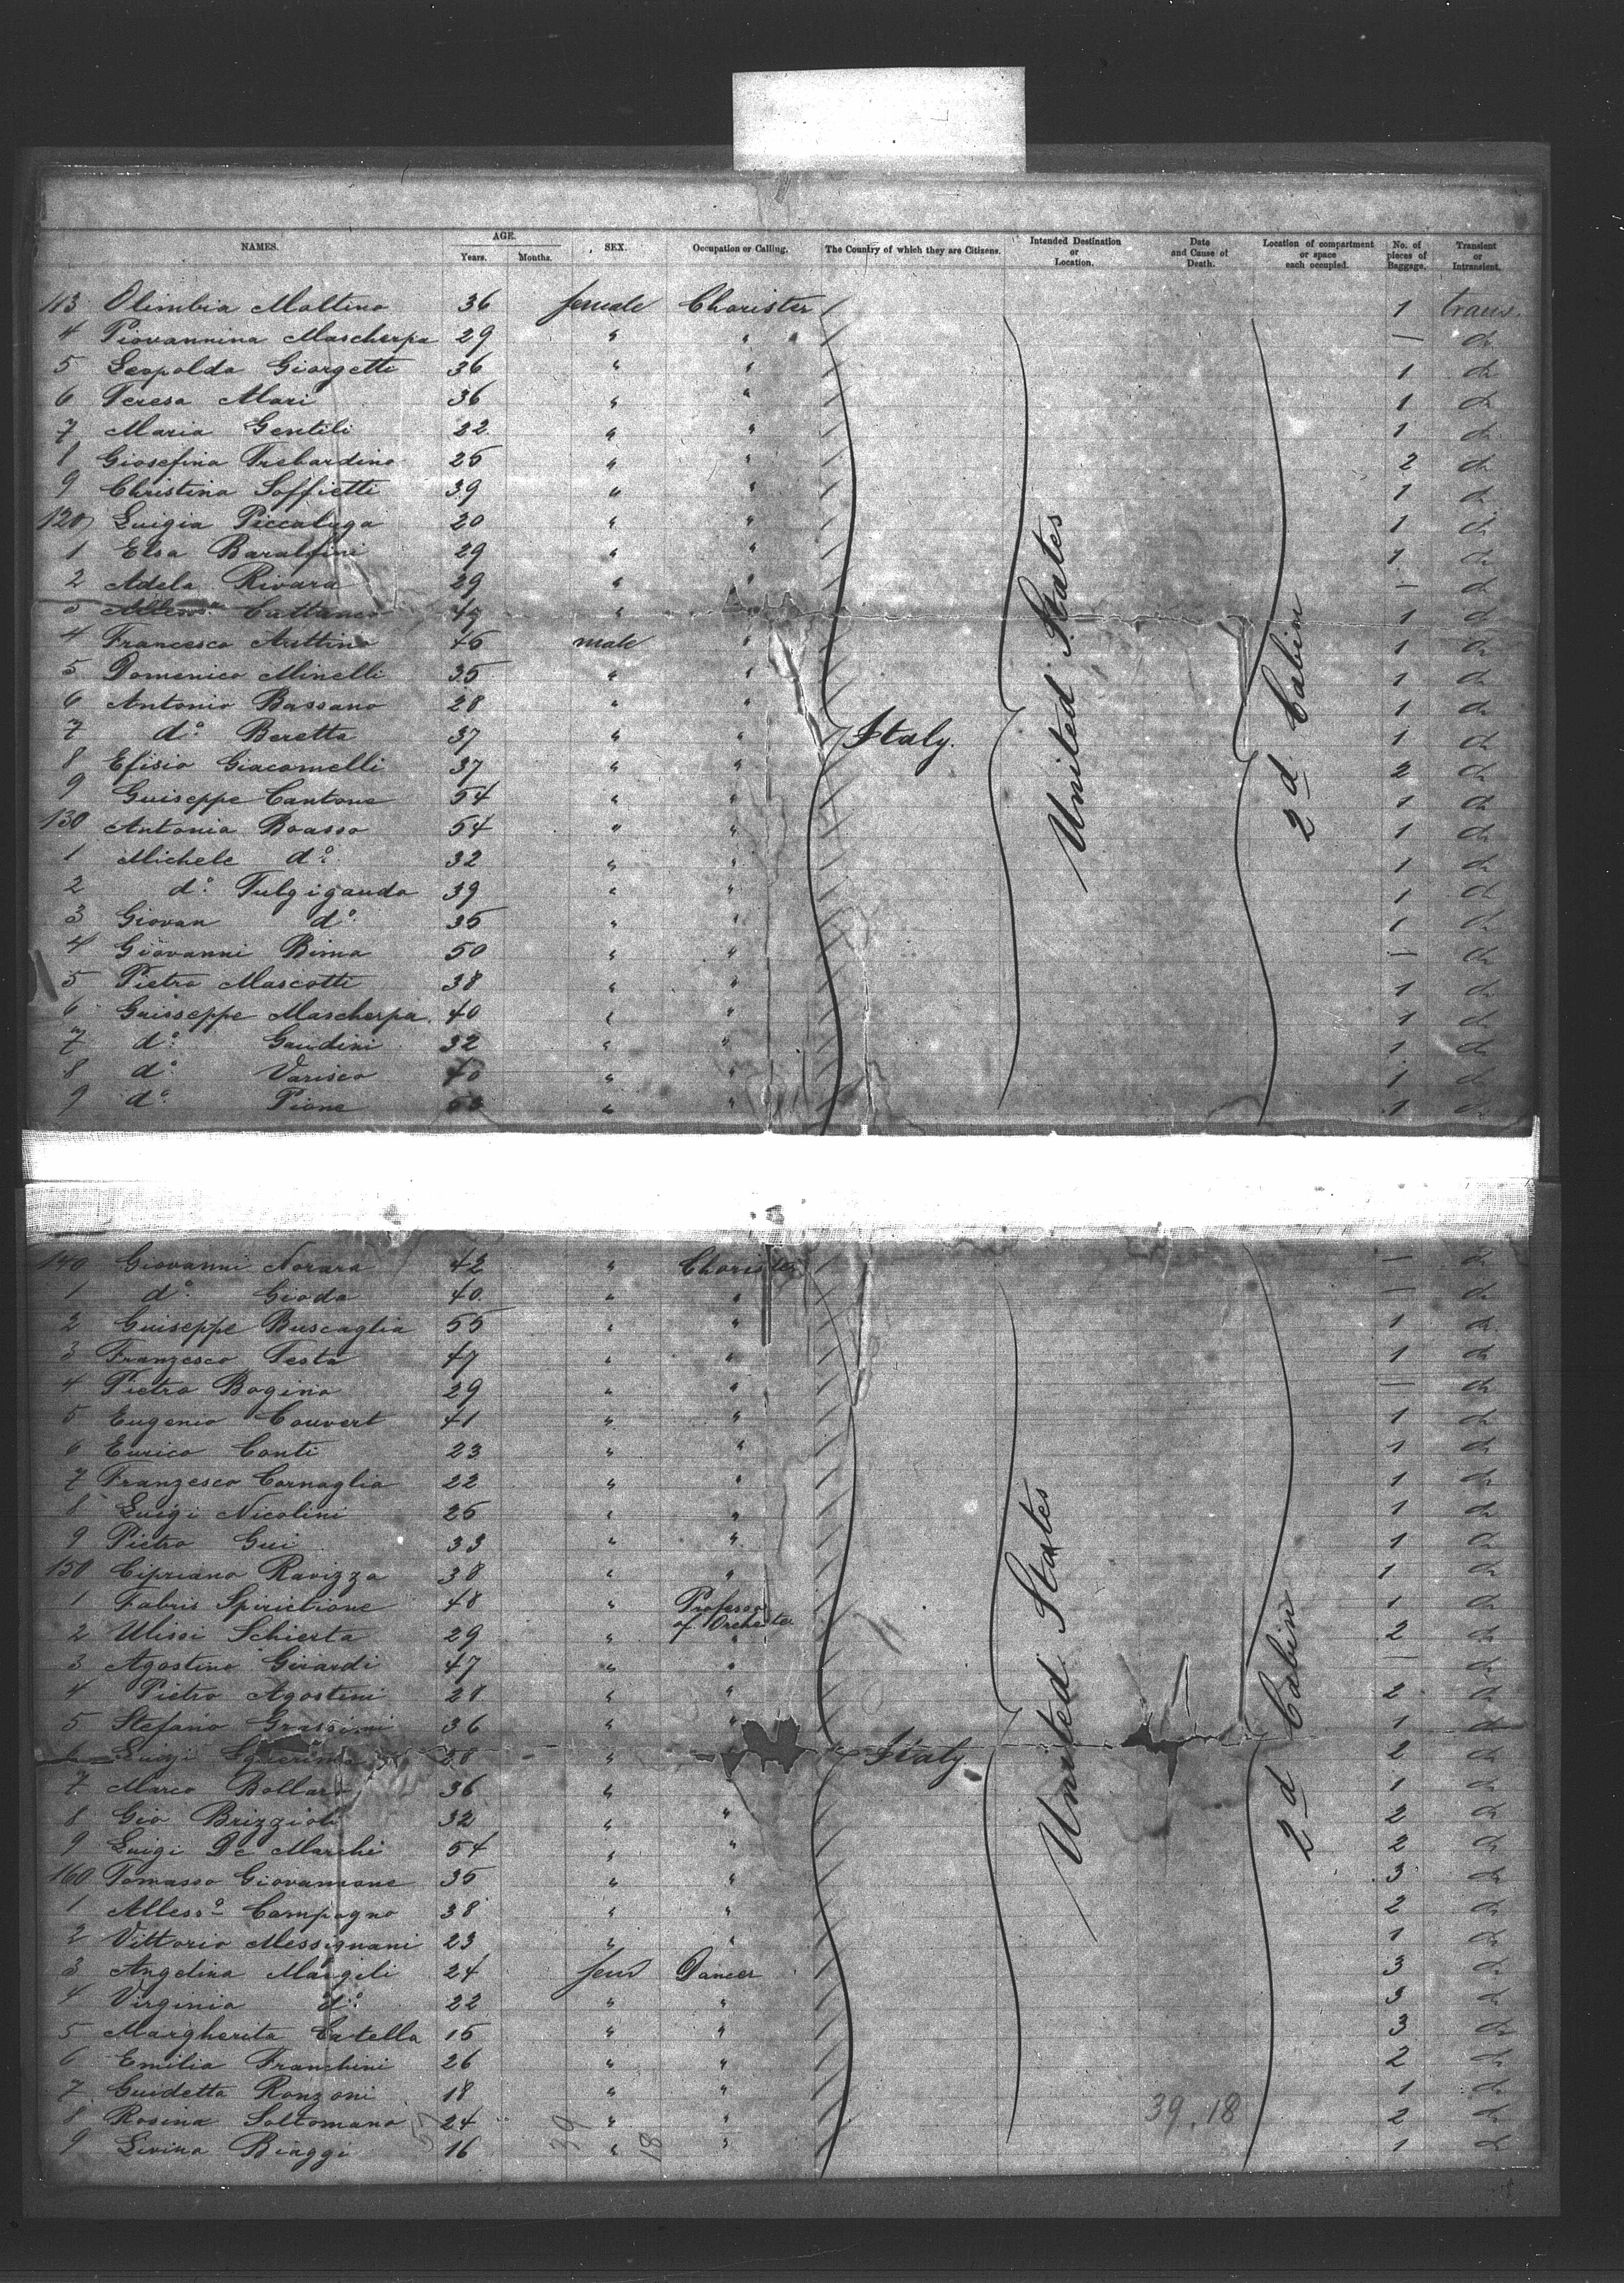 NAMES. AGE. Years. Months. SEX. Occupation or Calling. The Country of which they are Citizens. Intended Destination or Location. Date and Cause of Death. Location of compartment or space each occupied. No. of pieces of Baggage. Transient or Intransient.
113 Olimbia Maltino 36 female Chorister 1 trans.
4 Piovannina Mascherpa 29 " " — do
5 Leopolda Giorgetti 36 " " 1 do
6 Teresa Mari 36 " " 1 do
7 Maria Gentili 22 " " 1 do
8 Giosefina Trebardino 25 " " 2 do
9 Christina Soffietti 39 " " 1 do
120 Luigia Piccaluga 20 " " 1 do
1 Elsa 29 " " 1 do
2 Adela Rivara 29 " " — do
3 Cattaneo " " 1 do
4 Francesco Arettino 46 male " 1 do
5 Domenico Minelli 35 " " 1 do
6 Antonio Bassano 28 " " 1 do
7 do Beretta 37 " " Italy. 1 do
United States
2d Cabin
8 Efisio Giacomelli 37 " " 2 do
9 Guiseppe Cantone 54 " " 1 do
130 Antonio Boasso 54 " " 1 do
1 Michele do 32 " " 1 do
2 do Fulgiganda 39 " " 1 do
3 Giovan do 35 " " 1 do
4 Giovanni Bima 50 " " — do
5 Pietro Mascotti 38 " " 1 do
6 Guisseppe Mascherpa 40 " " 1 do
7 do Gaudini 32 " " 1 do
8 do Varisco 40 " " 1 do
9 do Pione " " 1 do
140 Giovanni Norara 42 " Chorister — do
1 do Gioda 40 " " — do
2 Guiseppe Buscaglia 55 " " 1 do
3 Franzesco Testa 47 " " 1 do
4 Pietro Bogino 29 " " — do
5 Eugenio Couvert 41 " " 1 do
6 Enrico Conti 23 " " 1 do
7 Franzesco Cornaglia 22 " " 1 do
8 Luigi Nicolini 25 " " 1 do
9 Pietro Gui 33 " " 1 do
150 Cipriano Ravizza 38 " " 1 do
1 Fabris Spirictione 48 " Professor of Orchester 1 do
2 Ulissi Schierta 29 " " 2 do
3 Agostino Girardi 47 " " — do
4 Pietro Agostini 28 " " 2 do
5 Stefano Grassimi 36 " " 1 do
6 Luigi " " Italy. 2 do
United States
2d Cabin
7 Marco Bollaro 36 " " 1 do
8 Gio Brizzioli 32 " " 2 do
9 Luigi De Marchi 54 " " 2 do
160 Tomasso Giovannone 35 " " 3 do
1 Allesso Campagno 38 " " 2 do
2 Vittorio Messignani 23 " " 1 do
3 Angelina Maigili 24 fem Dancer 3 do
4 Virginia do 22 " " 3 do
5 Margherita Catella 15 " " 3 do
6 Emilia Franchini 26 " " 2 do
7 Guidetta Ronzoni 18 " " 1 do
8 Rosina Soltomano 24 " " 2 do
9 Livina Biaggi 16 " " 1 do
57 39 18 39.18